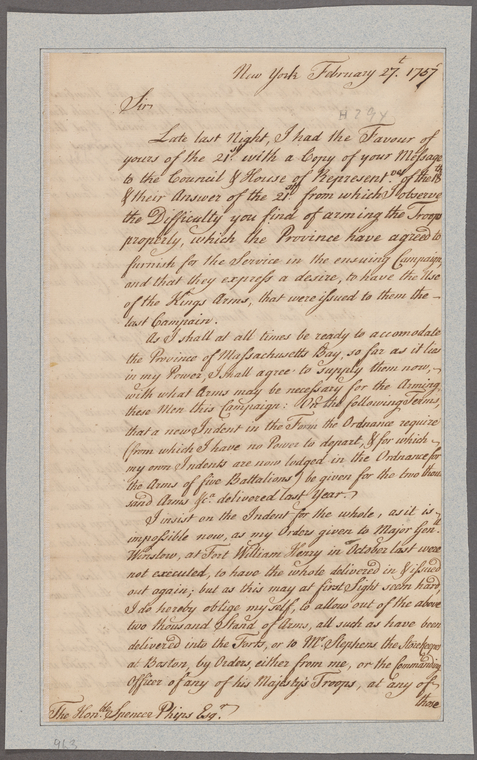 New York February 27.t 1757
Sir
H 29x
Late last Night, I had the Favour of
yours of the 21st with a Copy of your Message
to the Council & House of Represent.ves of the 18th
& their Answer of the 21st from which I observe
the Difficulty you find of arming the Troops
properly, which the Province have agreed to
furnish for the Service in the ensuing Campaign
and that they express a desire, to have the Use
of the Kings Arms, that were issued to them the
last Campain.
As I shall at all times be ready to accomodate
the Province of Massachusetts Bay, so far as it lies
in my Power, I shall agree to supply them now,
with what Arms may be necessary for the Arming
these Men this Campaign: On the following Terms,
that a new Indent in the Form the Ordnance require
(from which I have no Power to depart, & for which
my own Indents are now lodged in the Ordnance for
the Arms of five Battalions) be given for the two thou
sand Arms &c.a delivered last Year.
I insist on the Indent for the whole, as it is
impossible now, as my Orders given to Major Genll
Winslow, at Fort William Henry in October last were
not executed, to have the whole delivered in & issued
out again; but as this may at first Sight seem hard,
I do hereby oblige myself, to allow out of the above
two thousand Stand of Arms, all such as have been
delivered into the Forts, or to Mr. Stephens the Storekeeper
at Boston, by Orders, either from me, or the Commanding
Officer of any of his Majesty's Troops, at any of
those
The Hon.ble Spencer Phips Esqr.
963